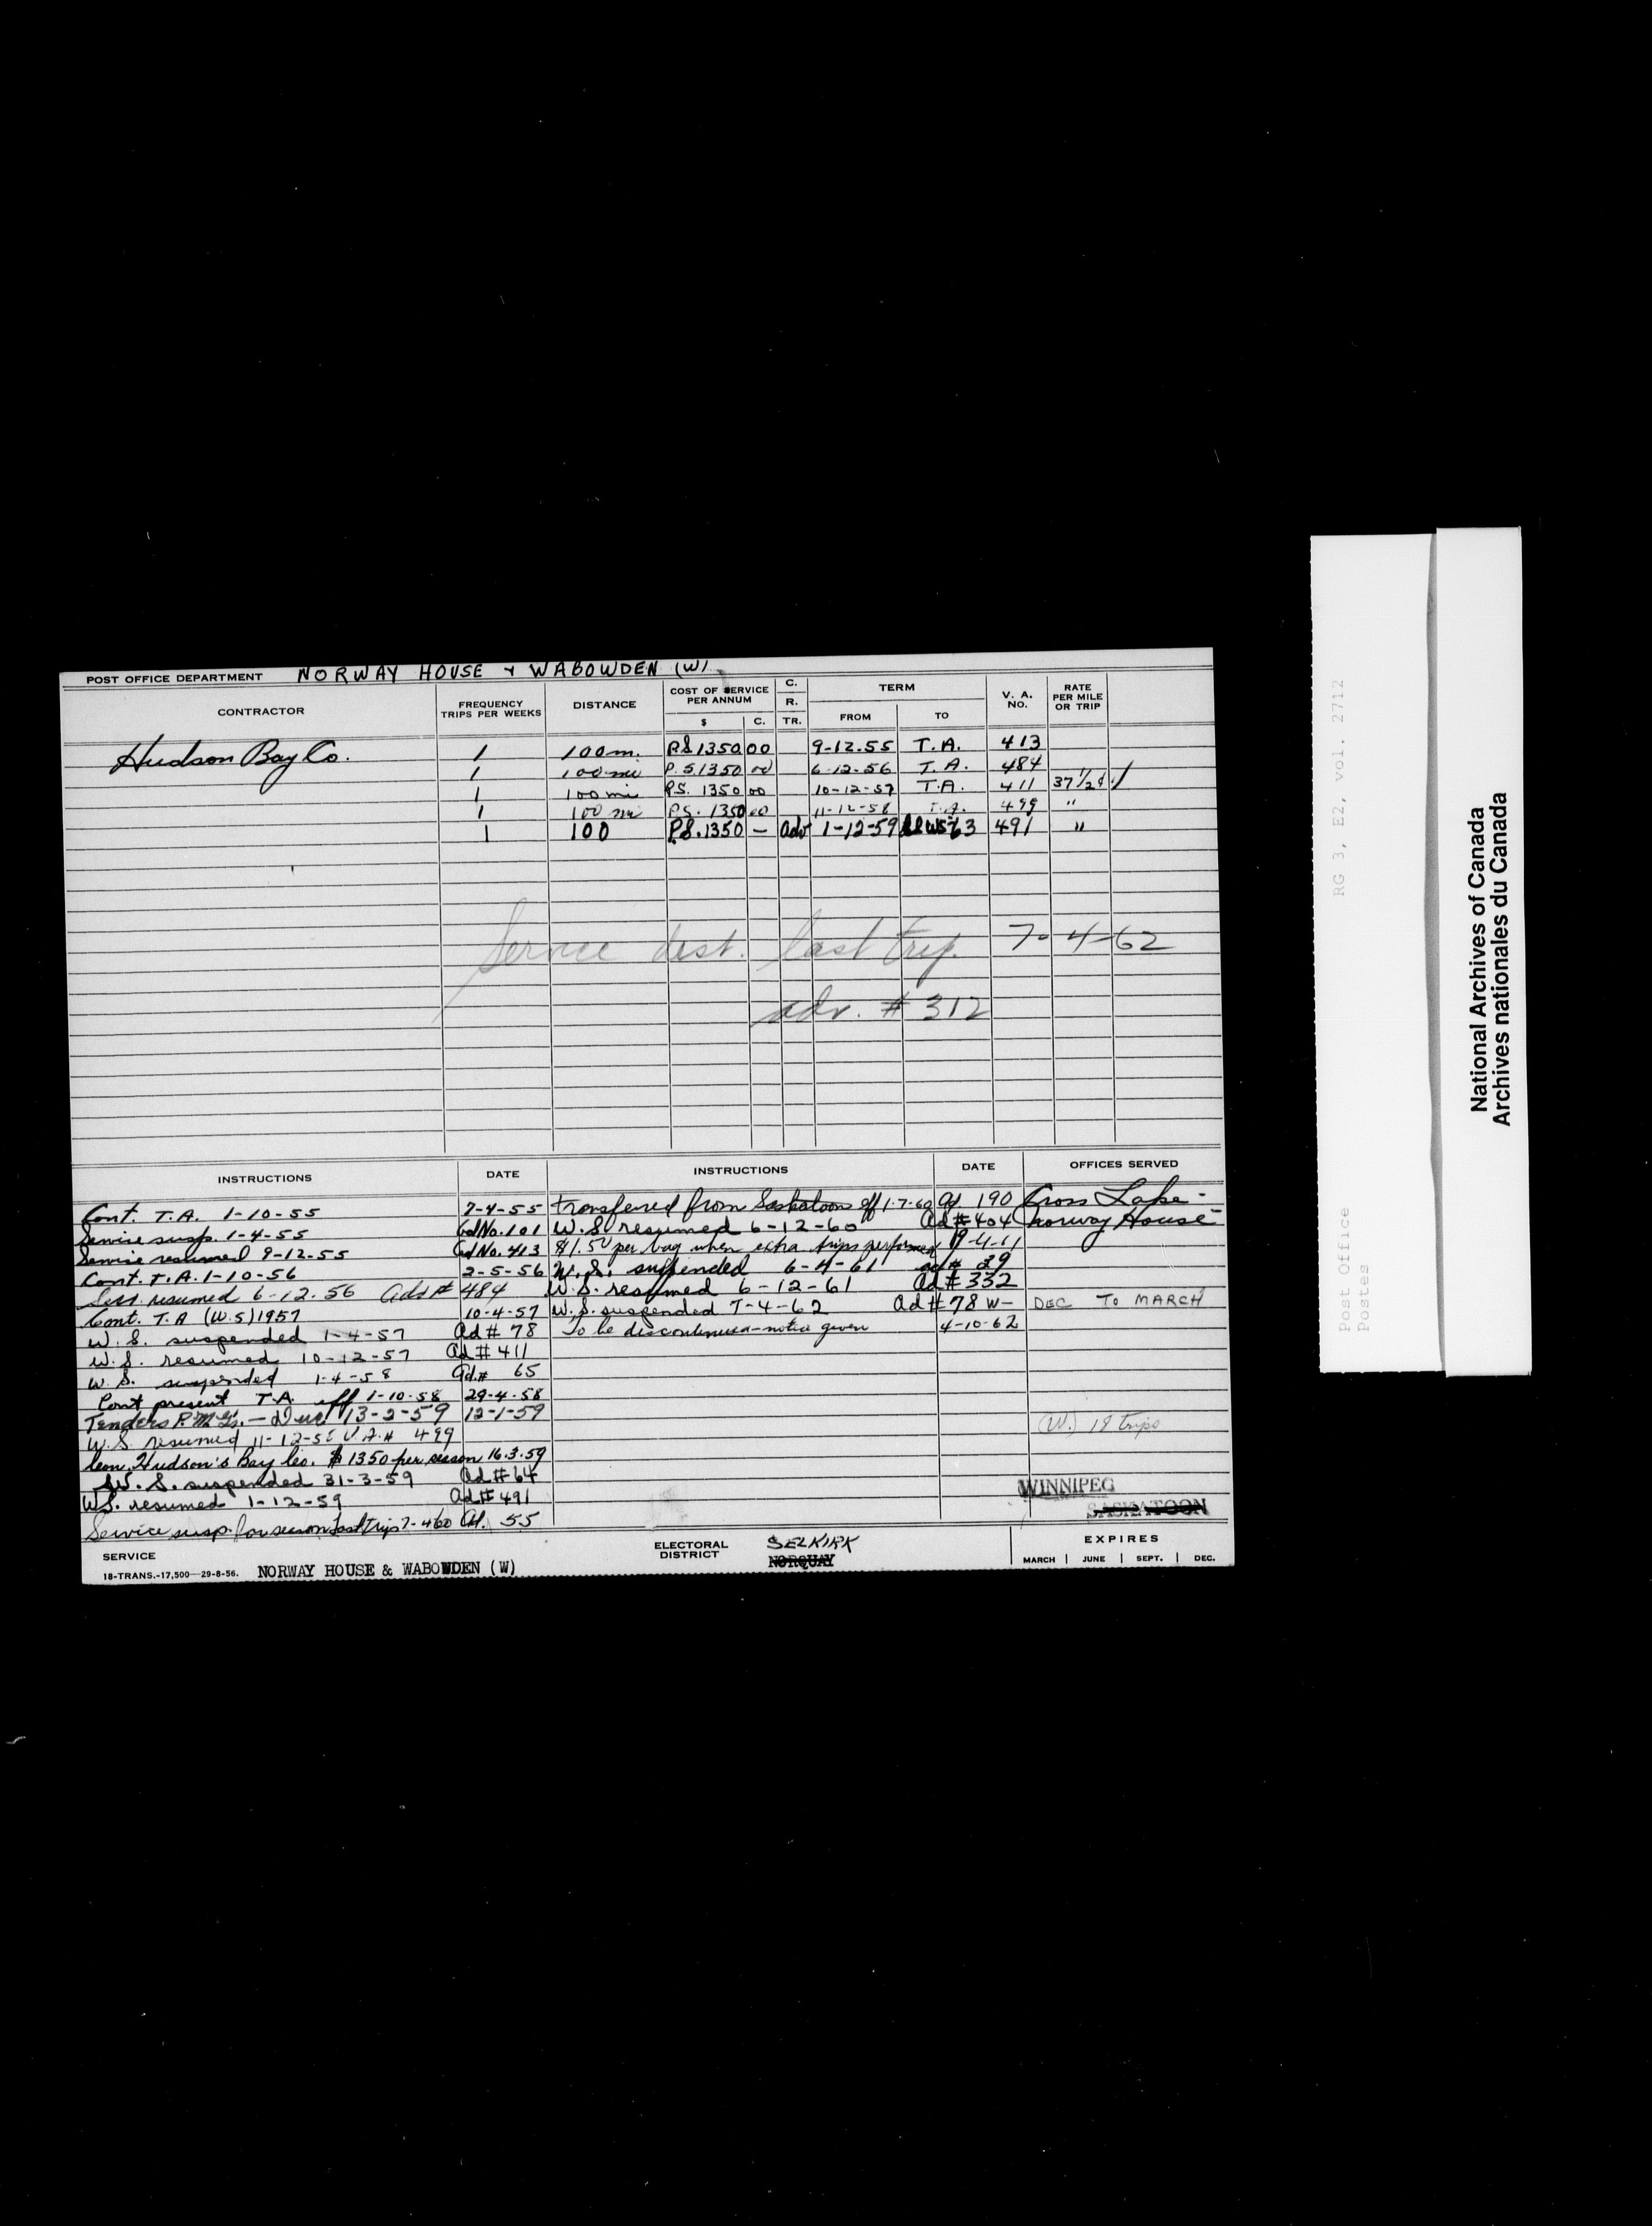 POST OFFICE DEPARTMENT NORWAY HOUSE & WABOWDEN (W)
CONTRACTOR FREQUENCY TRIPS PER WEEKS DISTANCE COST OF SERVICE PER ANNUM $ C. C. R. TR. TERM FROM TO V. A. NO. RATE PER MILE OR TRIP
Hudson Bay Co. 1 100 m. P.S 1350 00 9-12-55 T.A. 413
1 100 mi P.S. 1350 00 6-12-56 T.A. 484
1 100 mi P.S. 1350 00 10-12-57 T.A. 411 37 1/2 ¢
1 100 mi P.S. 1350 00 11-12-58 T.A. 499 "
1 100 P.S. 1350 — Adv 1-12-59 63 491 "
Service dist. last trip. 7-4-62
adv. # 312
INSTRUCTIONS DATE INSTRUCTIONS DATE OFFICES SERVED
Cont. T.A. 1-10-55 7-4-55 transferred from Saskatoon eff 1-7-60 Ad. 190 Cross Lake -
Service susp. 1-4-55 Ad No. 101 W.S. resumed 6-12-60 Ad # 404 Norway House -
Service resumed 9-12-55 Ad No. 413 $1.50 per bag when extra trips performed
Cont. T.A. 1-10-56 2-5-56 W.S. suspended 6-4-61 ad # 29
Serv. resumed 6-12-56 Adv # 484 W.S. resumed 6-12-61 Ad # 332
Cont. T.A (W.S) 1957 10-4-57 W.S. suspended 7-4-62 Ad # 78 W- DEC TO MARCH
W.S. suspended 1-4-57 Ad # 78 To be discontinued - notice given 4-10-62
W.S. resumed 10-12-57 Ad # 411
W.S. suspended 1-4-58 Ad. # 65
Cont present T.A. eff 1-10-58 29-4-58
Tenders P.M.G's. — Due 13-2-59 12-1-59 (W.) 18 trips
W.S. resumed 11-12-58 V.A. # 499
Hudson's Bay Co. $1350 per season 16.3.59
W.S. suspended 31-3-59 Ad # 64 WINNIPEG
W.S. resumed 1-12-59 Ad # 491 SASKATOON
Service susp. for season last trip 7-4-60 Ad. 55
SERVICE ELECTORAL DISTRICT SELKIRK NORQUAY EXPIRES MARCH JUNE SEPT. DEC.
18-TRANS.-17,500—29-8-56. NORWAY HOUSE & WABOWDEN (W)
RG 3, E2, vol. 2712
Post Office
Postes
National Archives of Canada
Archives nationales du Canada